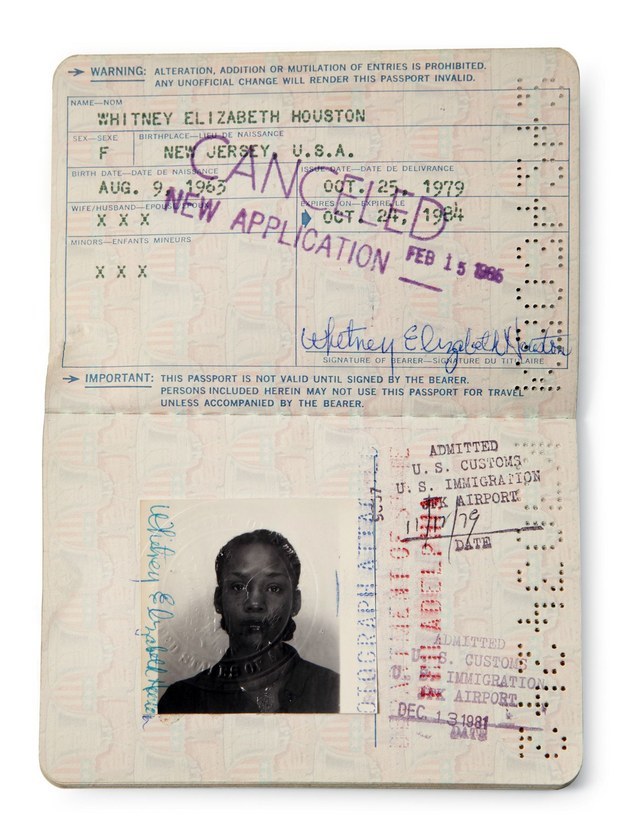 WARNING: ALTERATION, ADDITION OR MUTILATION OF ENTRIES IS PROHIBITED.
ANY UNOFFICIAL CHANGE WILL RENDER THIS PASSPORT INVALID.
NAME—NOM
WHITNEY ELIZABETH HOUSTON
SEX—SEXE BIRTHPLACE—LIEU DE NAISSANCE
F NEW JERSEY, U.S.A.
BIRTH DATE—DATE DE NAISSANCE ISSUE DATE—DATE DE DELIVRANCE
AUG. 9, 1963 OCT. 25, 1979
WIFE/HUSBAND—EPOUSE/EPOUX EXPIRES ON—EXPIRE LE
X X X OCT. 24, 1984
MINORS—ENFANTS MINEURS
X X X
CANCELED
NEW APPLICATION FEB 15 1985
Whitney Elizabeth Houston
SIGNATURE OF BEARER—SIGNATURE DU TITULAIRE
IMPORTANT: THIS PASSPORT IS NOT VALID UNTIL SIGNED BY THE BEARER.
PERSONS INCLUDED HEREIN MAY NOT USE THIS PASSPORT FOR TRAVEL
UNLESS ACCOMPANIED BY THE BEARER.
Whitney Elizabeth Houston
PHILADELPHIA
ADMITTED
U. S. CUSTOMS
U. S. IMMIGRATION
JFK AIRPORT
DATE
ADMITTED
U. S. CUSTOMS
U. S. IMMIGRATION
JFK AIRPORT
DEC. 13 1981
DATE